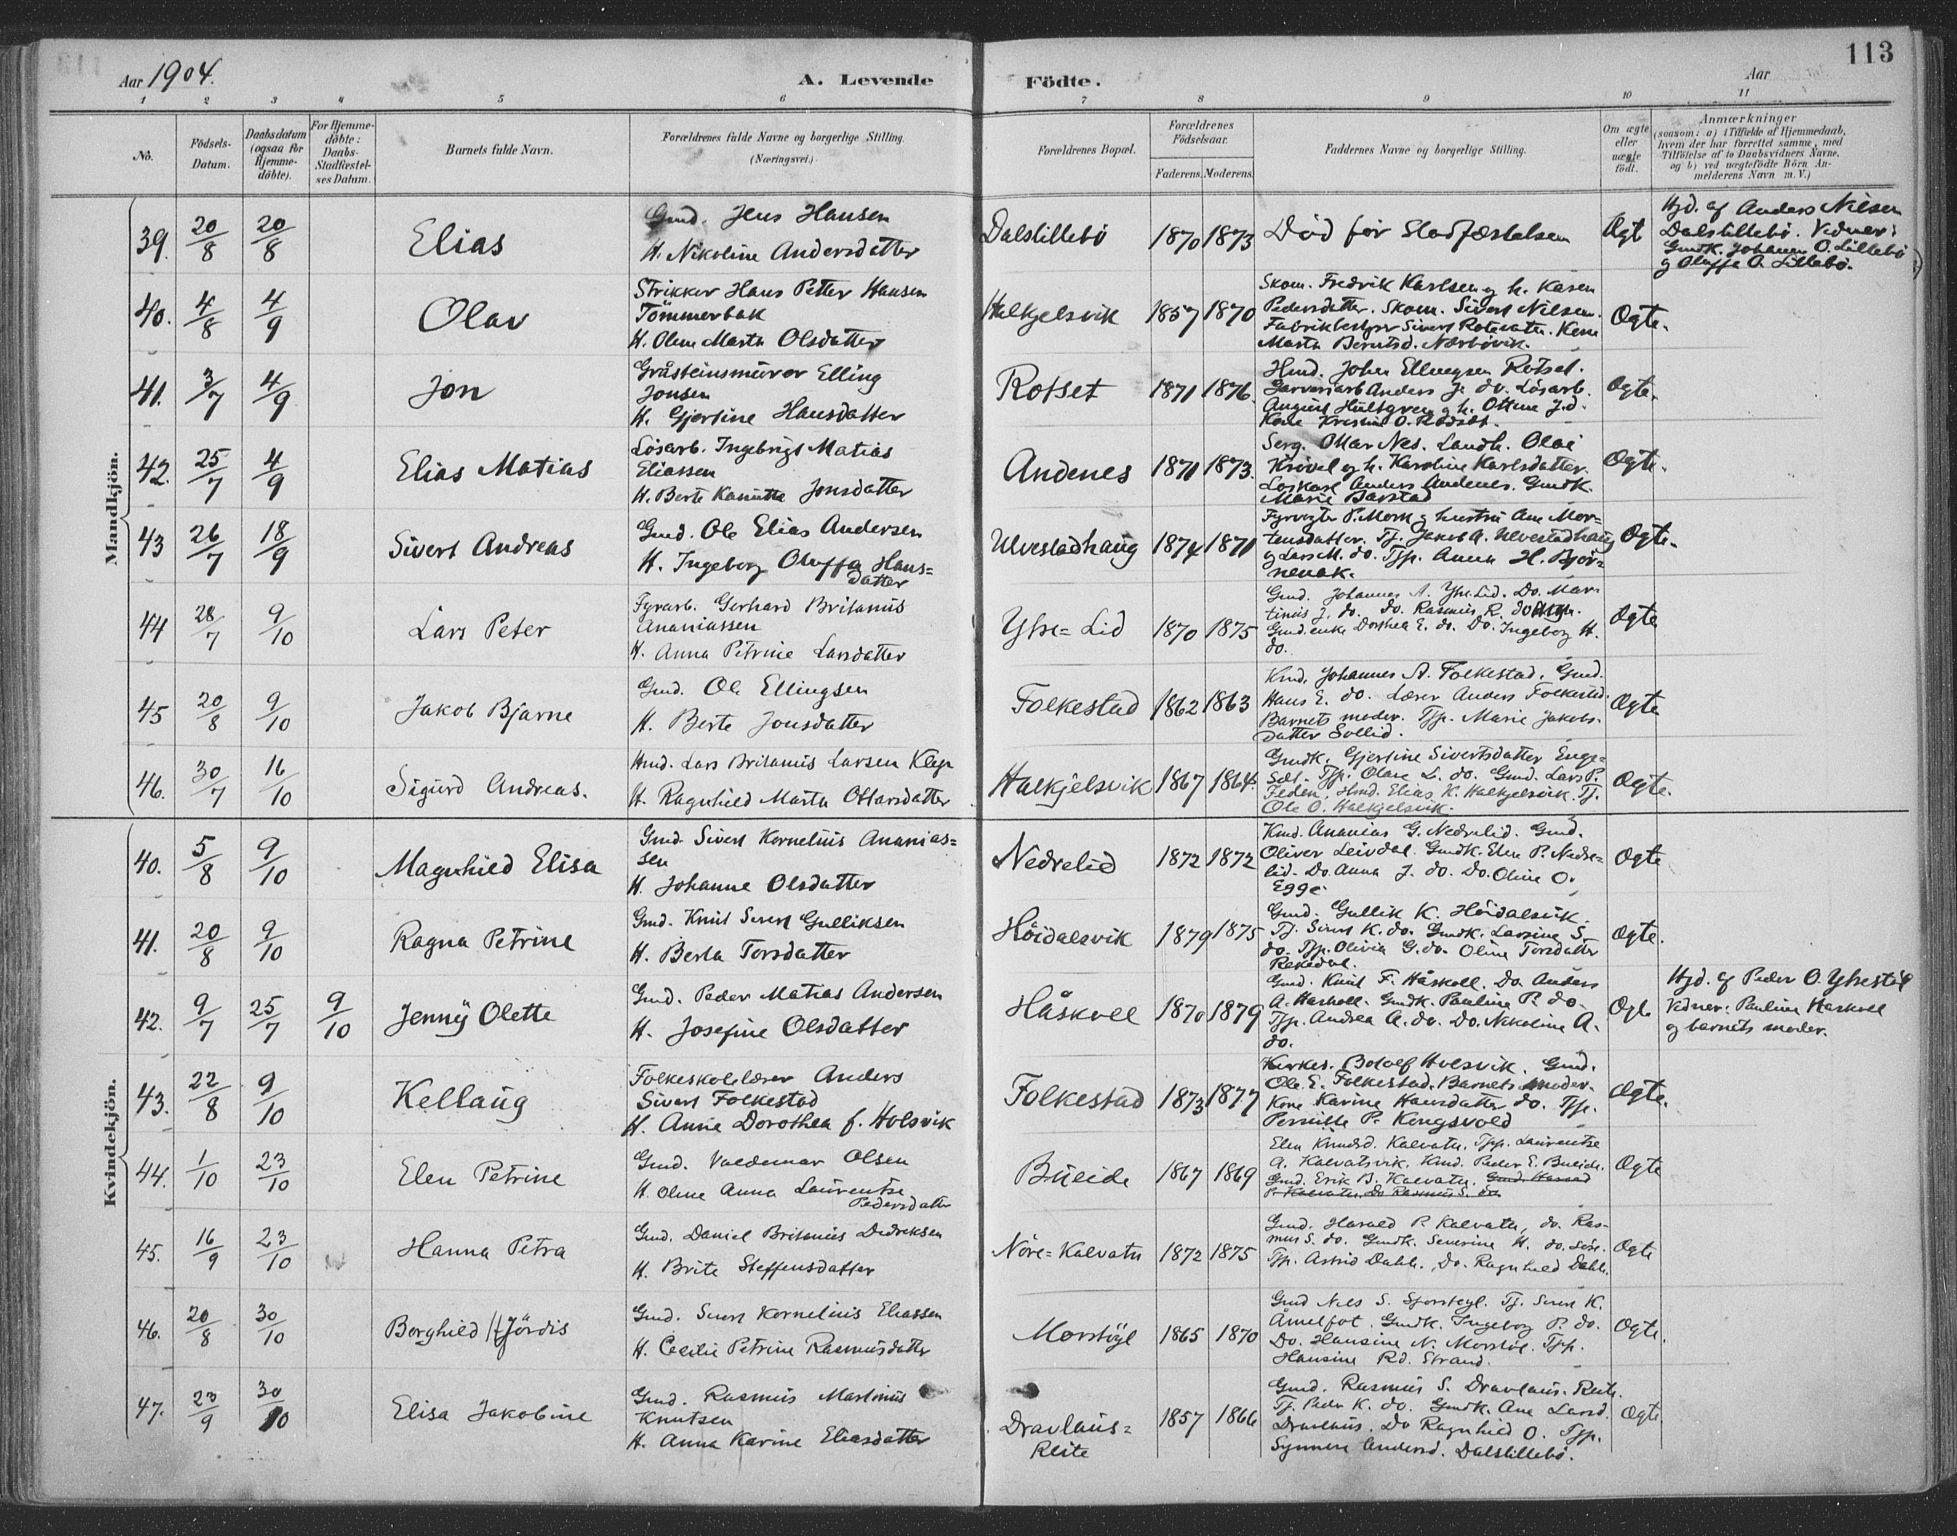 113
Aar 1904.
A. Levende Födte.
Aar
1 2 3 4 5 6 7 8 9 10 11
No.
Födsels-Datum.
Daabsdatum (ogsaa for Hjemmedöbte).
For Hjemmedöbte: Daabs-Stadfæstelses Datum.
Barnets fulde Navn.
Forældrenes fulde Navne og borgerlige Stilling. (Næringsvei.)
Forældrenes Bopæl.
Forældrenes Födselsaar.
Faderens. Moderens.
Faddernes Navne og borgerlige Stilling.
Om ægte eller uægte födt.
Anmærkninger
(saasom: a) i Tilfælde af Hjemmedaab, hvem der har forrettet samme, med Tilföielse af to Daabsvidners Navne, og b) ved uægtefödte Börn Anmelderens Navn m. V.)
Mandkjön.
39. 20/8 20/8 Elias
Gmd. Jens Hansen
H. Nikoline Andersdatter
Dalslillebö 1870 1873 Död för Stadfæstelsen Ægt
Hjd. af Anders Nilsen
Dalslillebö. Vidner:
Gmdk. Johanne O. Lillebö
og Oluffe O. Lillebö.
40. 4/8 4/9 Olav
Strikker Hans Petter Hansen
Tömmerbak
H. Oline Marta Olsdatter
Halkjelsvik 1857 1870
Skom. Fredrik Karlsen og h. Karen
Pedersdatter. Skom. Sivert Nilsen.
Fabrikbestyrer Sivert Rotevatn. Kone
Marta Berntsd. Nærbövik.
Ægte.
41. 3/7 4/9 Jon
Gråsteinsmurer Elling
Jonsen
H. Gjertine Hansdatter
Rotset 1871 1876.
Hmd. Johan Ellingsen Rotset.
Garveriarb. Anders J. do. Lösarb.
August Hultgren og h. Ottine J.d.
Kone Kristine O. Rotset.
Ægte.
42. 25/7 4/9 Elias Matias
Lösarb. Ingebrigt Matias
Eliassen
H. Berte Kanutte Jonsdatter
Andenes 1871 1873.
Serg. Ottar Nes. Landh. Olai
Krövel og h. Karoline Karlsdatter.
Loskarl Anders Andenes. Gmdk.
Marie Barstad
Ægte.
43 26/7 18/9 Sivert Andreas
Gmd. Ole Elias Andersen
H. Ingeborg Oluffa Hans=
datter
Ulvestadhaug 1874 1871
Fyrvogter P. Mork og hustru Ane Mor=
tensdatter. Tj. Jakob A. Ulvestadhaug
og Lars M. do. Tjp. Anna H. Björ=
nenak.
Ægte.
44 28/7 9/10 Lars Peter
Fyrarb. Gerhard Britanus
Ananiassen
H. Anna Petrine Larsdatter
Yhre=Lid 1870 1875
Gmd. Johannes A. Yhre Lid. Do. Mar=
tinus J. do. Do. Rasmus R.
Gmd.enke Dorthea E. do. Do. Ingeborg H.
do.
Ægte
45 20/8 9/10 Jakob Bjarne
Gmd. Ole Ellingsen
H. Berte Jonsdatter
Folkestad 1862 1863
Kmd. Johannes A. Folkestad. Gmd.
Hans E. do. Lærer Anders Folkestad.
Barnets moder. Tjp. Marie Jakobs=
datter Sollid.
Ægte
46. 30/7 16/10 Sigurd Andreas.
Hmd. Lars Britanus Larsen Klep
H. Ragnhild Marta Ottarsdatter
Halkjelsvik 1867 1864.
Gmdk. Gjertine Sivertsdatter Enge=
Set. Tjp. Olave L. do. Gmd. Lars P.
Feden. Hmd. Elias K. Halkjelsvik. Tj.
Ole O. Halkjelsvik.
Ægte.
Kvindekjön.
40. 5/8 9/10 Magnhild Elisa
Gmd. Sivert Kornelius Ananias=
sen
H. Johanne Olsdatter
Nedrelid 1872 1872
Kmd. Ananias G. Nedrelid. Gmd.
Oliver Leivdal. Gmdk. Elen P. Nedre=
lid. Do Anna J. do. Do. Oline O.
Egge.
Ægte
41. 20/8 9/10 Ragna Petrine
Gmd. Knut Sivert Gulliksen
H. Berta Torsdatter
Höidalsvik 1879 1875
Gmd. Gullik K. Höidalsvik.
Tj. Sivert K. do. Gmdk. Larsine S.
do. Tjp. Olivia G. do. Oline Torsdatter
Rekedal.
Ægte.
42. 9/7 25/7 9/10 Jenny Olette
Gmd. Peder Matias Andersen
H. Josefine Olsdatter
Håskoll 1870 1879
Gmd. Knut F. Håskoll. Do. Anders
A. Haskoll. Gmdk. Pauline P. do.
Tjp. Andrea A. do. Do. Nikoline A.
do.
Ægte
Hjd. af Peder O. Yhrestöl
Vidner: Pauline Haskoll
og barnets moder.
43. 22/8 9/10 Kellaug
Folkeskolelærer Anders
Sivert Folkestad
H. Anne Dorothea f. Holsvik
Folkestad 1873 1877
Kirkes. Botolf Holsvik. Gmd.
Ole E. Folkestad. Barnets moder.
Kone Karine Hansdatter do. Tjp.
Pernille P. Kongsvold
Ægte.
44. 1/10 23/10 Elen Petrine
Gmd. Valdemar Olsen
H. Oline Anna Laurentse
Pedersdatter
Bueide 1867 1869
Elen Knudsd. Kalvatn. Tjp. Laurentse
A. Kalvatsvik. Kmd. Peder E. Bueide.
Gmd. Erik B. Kalvatn. Gmd. Harald
P. Kalvatn. Do Rasmus S. do
Ægte
45. 16/9 23/10 Hanna Petra
Gmd. Daniel Britanus Dedreksen
H. Brite Steffensdatter
Nöre=Kalvatn 1872 1875
Gmd. Harald P. Kalvatn, do. Ras=
mus S. do. Gmdk. Severine H. do. Söre.
Tjp. Astrid Dahle. Do. Ragnhild Dahle.
Ægte
46. 20/8 30/10 Borghild Hjördis
Gmd. Sivert Kornelius Eliassen
H. Cecilie Petrine Rasmusdatter
Morstöyl 1865 1870
Gmd Nils S. Tj. Sivert K.
Åmelfot. Gmdk. Ingeborg P. do.
Do. Hansine N. Morstöl. Tjp.
Hansine Rd. Strand.
Ægte.
47. 23/9 30/10 Elisa Jakobine
Gmd. Rasmus Martinus
Knutsen
H. Anna Karine Eliasdatter
Dravlaus=
Reite
1857 1866
Gmd. Rasmus S. Dravlaus-Reite.
Tj. Peder K. do. Gmdk. Ane Larsd.
Dravlaus. Do Ragnhild O. Tjp.
Synnøve Andersd. Dalslillebö.
Ægte.